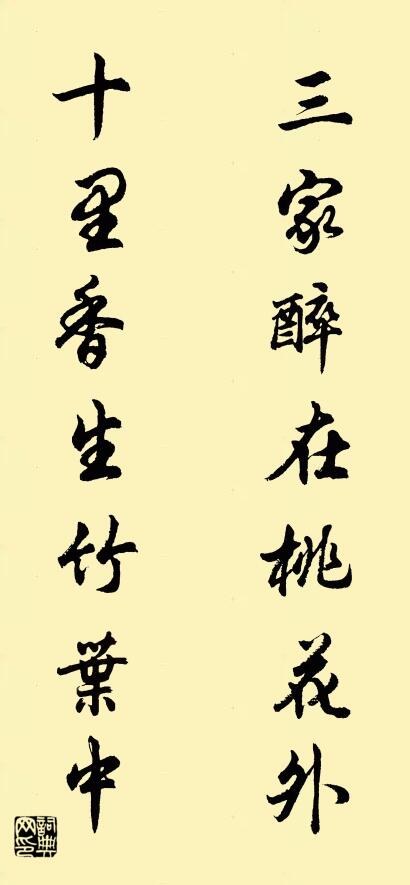 三家醉在桃花外
十里香生竹葉中
詞典网印